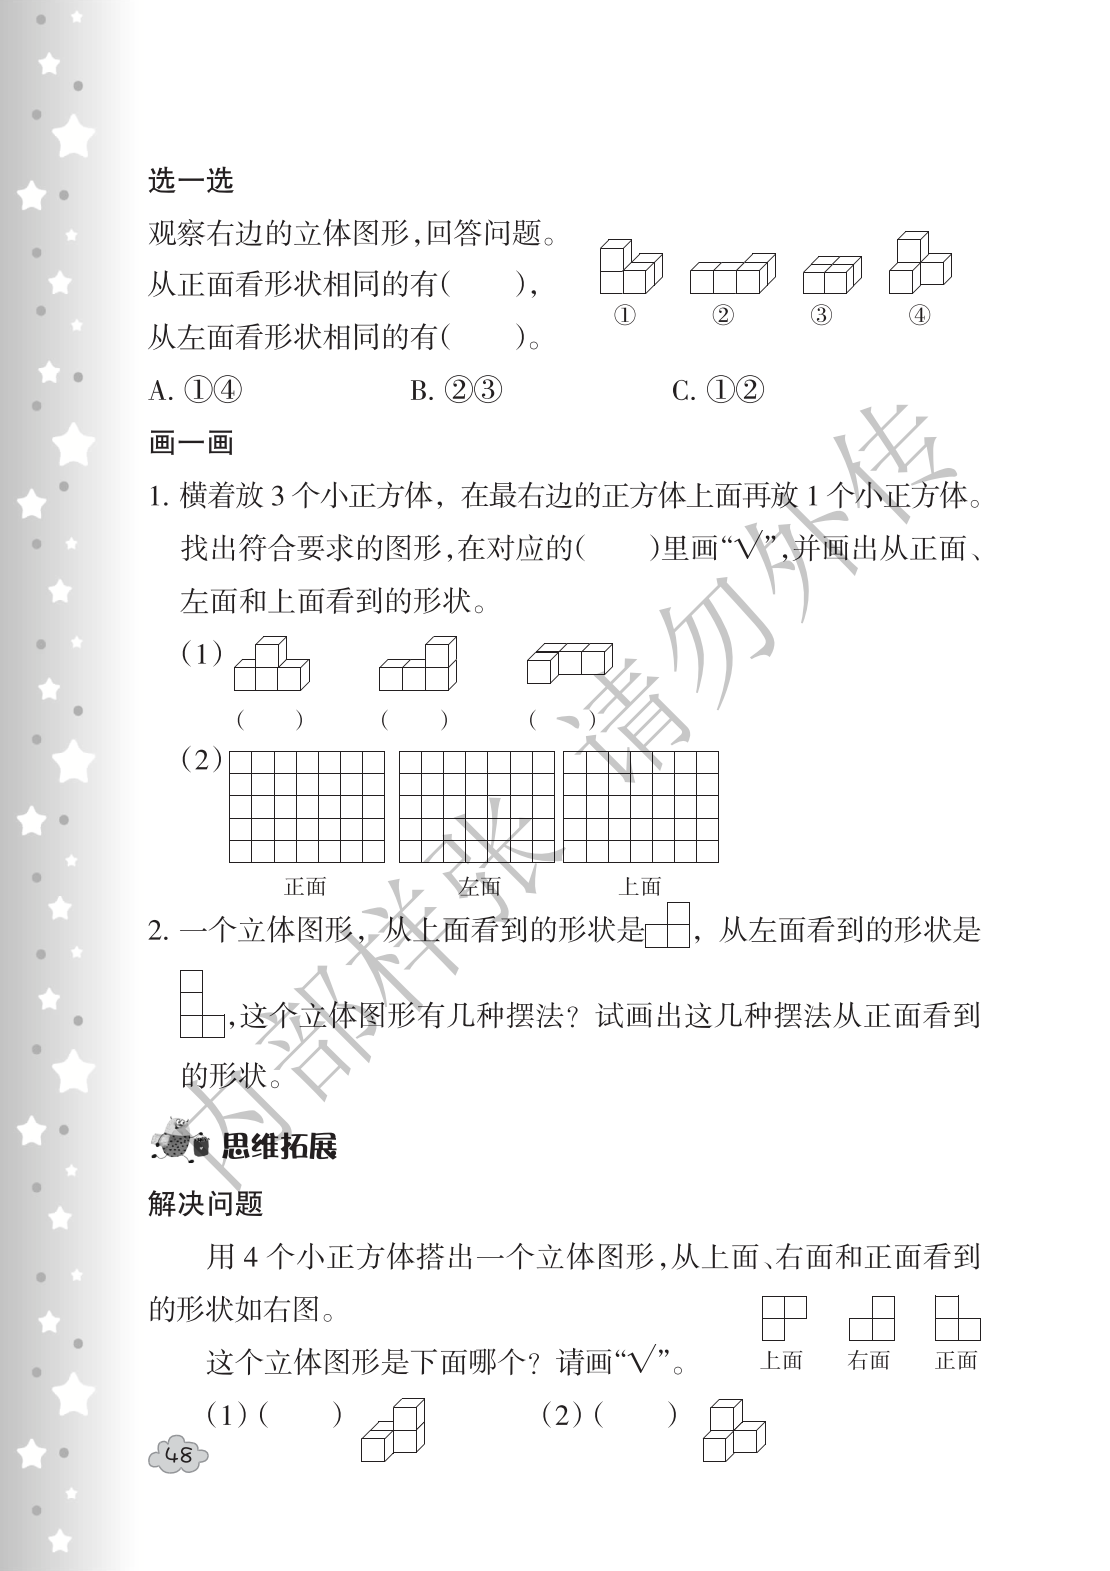 选一选
观察右边的立体图形,回答问题。
从正面看形状相同的有(　　),
从左面看形状相同的有(　　)。
① ② ③ ④
A. ①④ B. ②③ C. ①②
画一画
1. 横着放 3 个小正方体，在最右边的正方体上面再放 1 个小正方体。
找出符合要求的图形,在对应的(　　)里画“√”,并画出从正面、
左面和上面看到的形状。
(1)
(　　) (　　) (　　)
(2)
正面 左面 上面
2. 一个立体图形，从上面看到的形状是 ，从左面看到的形状是
,这个立体图形有几种摆法？试画出这几种摆法从正面看到
的形状。
思维拓展
解决问题
用 4 个小正方体搭出一个立体图形,从上面、右面和正面看到
的形状如右图。
上面 右面 正面
这个立体图形是下面哪个？请画“√”。
(1) (　　) (2) (　　)
48
内部样张 请勿外传